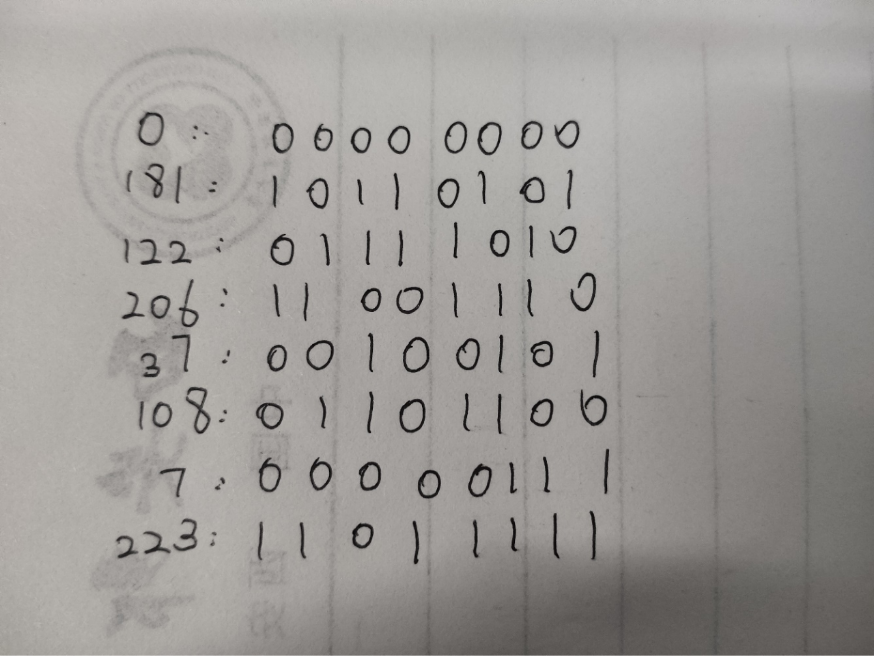 0: 0 0 0 0 0 0 0 0
181: 1 0 1 1 0 1 0 1
122: 0 1 1 1 1 0 1 0
206: 1 1 0 0 1 1 1 0
37: 0 0 1 0 0 1 0 1
108: 0 1 1 0 1 1 0 0
7: 0 0 0 0 0 1 1 1
223: 1 1 0 1 1 1 1 1